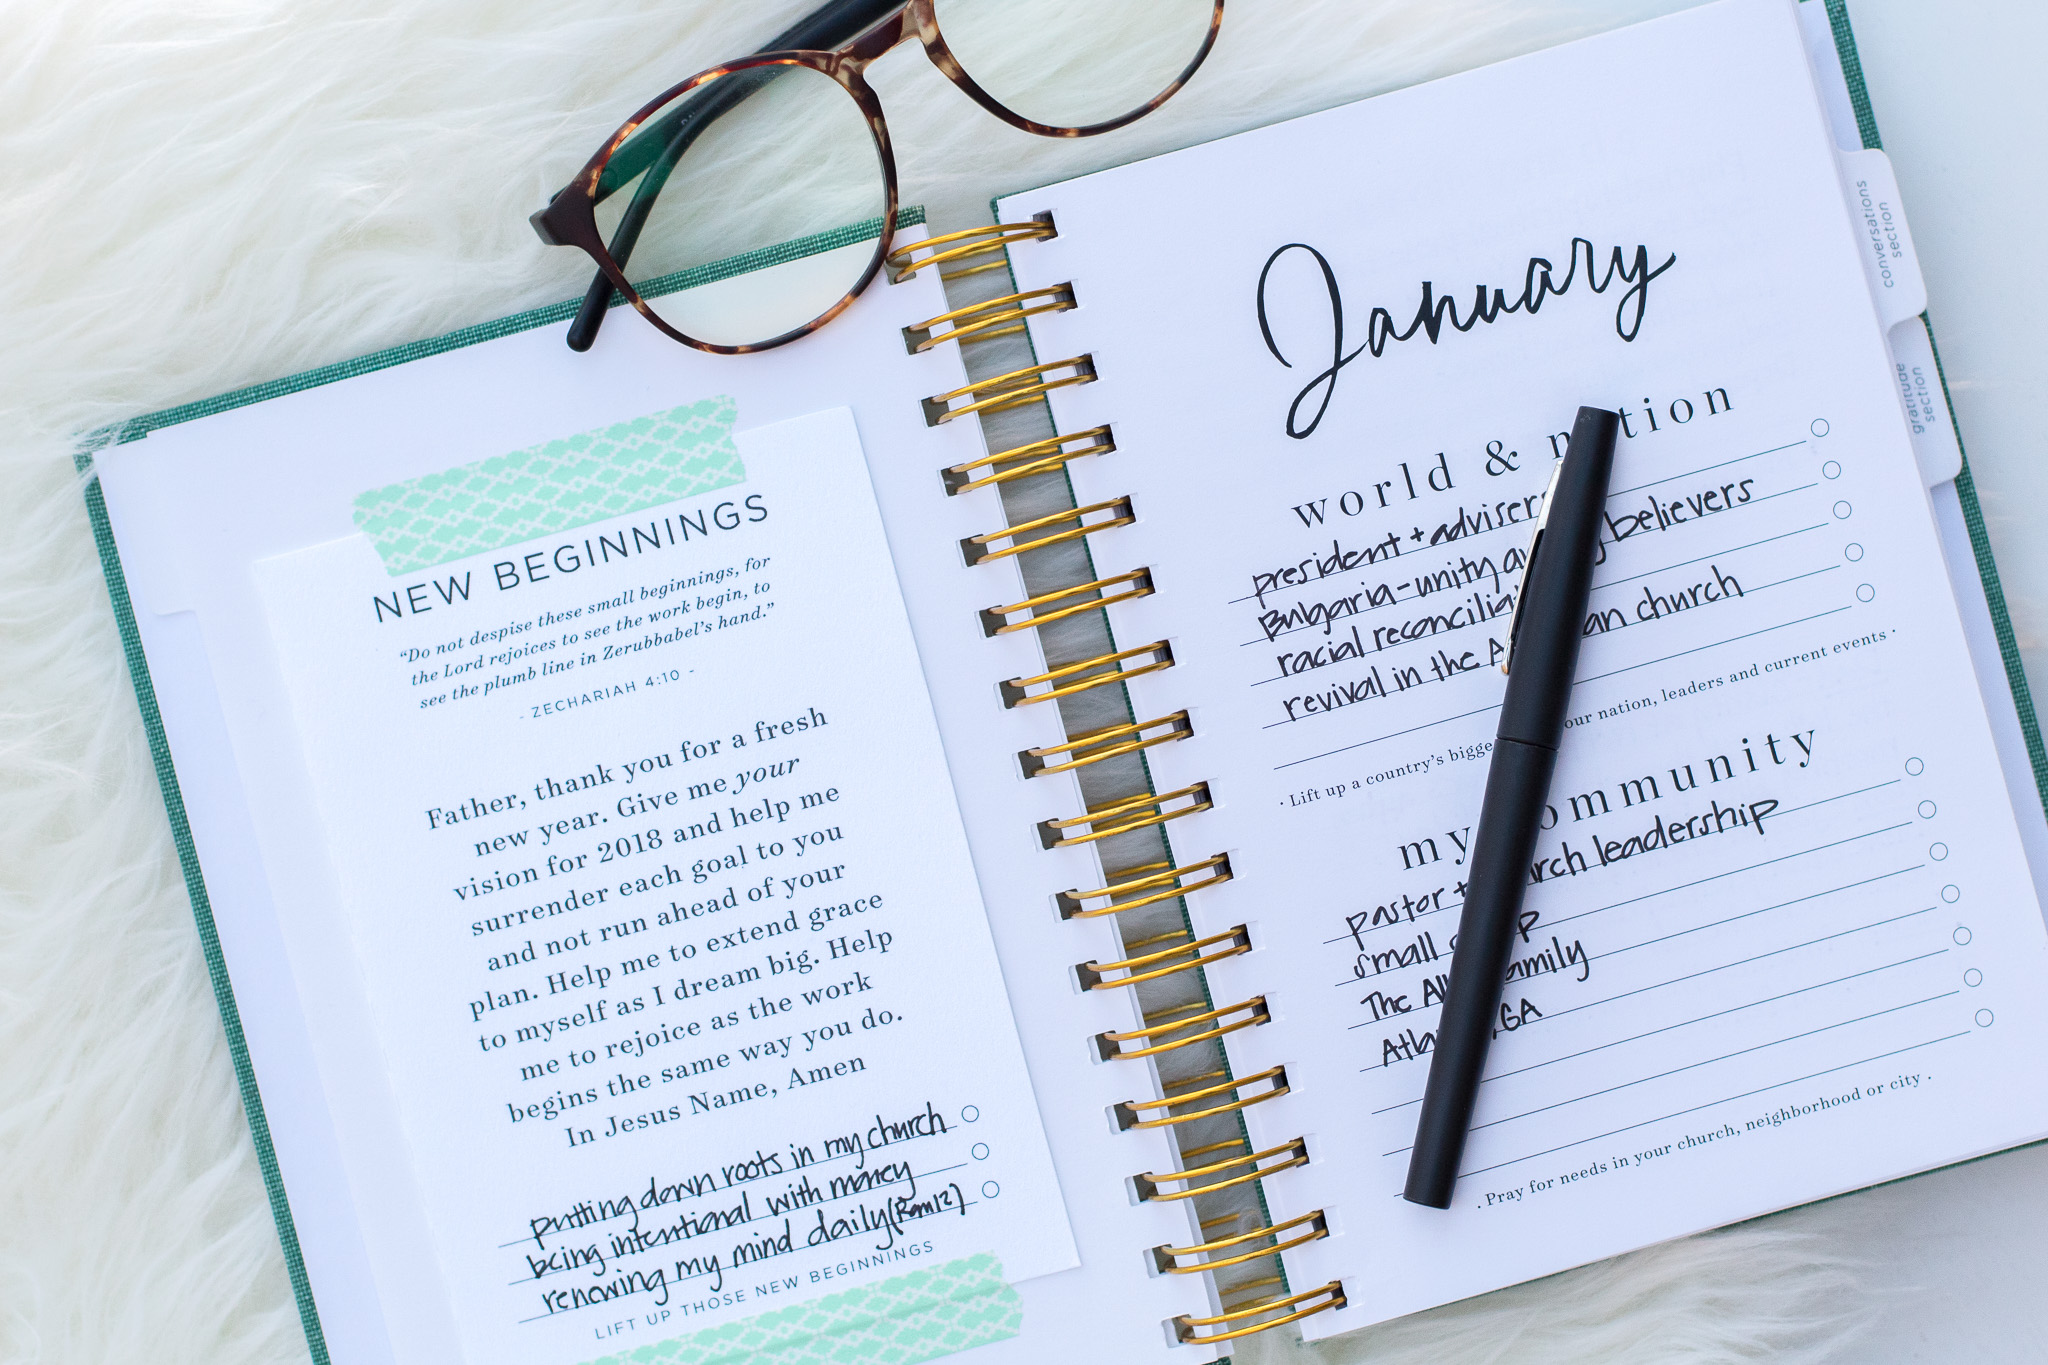 NEW BEGINNINGS
“Do not despise these small beginnings, for
the Lord rejoices to see the work begin, to
see the plumb line in Zerubbabel’s hand.”
- ZECHARIAH 4:10 -
Father, thank you for a fresh
new year. Give me your
vision for 2018 and help me
surrender each goal to you
and not run ahead of your
plan. Help me to extend grace
to myself as I dream big. Help
me to rejoice as the work
begins the same way you do.
In Jesus Name, Amen
putting down roots in my church
being intentional with money
renewing my mind daily (Rom 12)
LIFT UP THOSE NEW BEGINNINGS
January
world & nation
president + advisers
Bulgaria - unity believers
racial reconciliation
revival in the church
· Lift up a country’s our nation, leaders and current events ·
my community
pastor + church leadership
small group
The family
Atlanta, GA
· Pray for needs in your church, neighborhood or city ·
conversations
section
gratitude
section